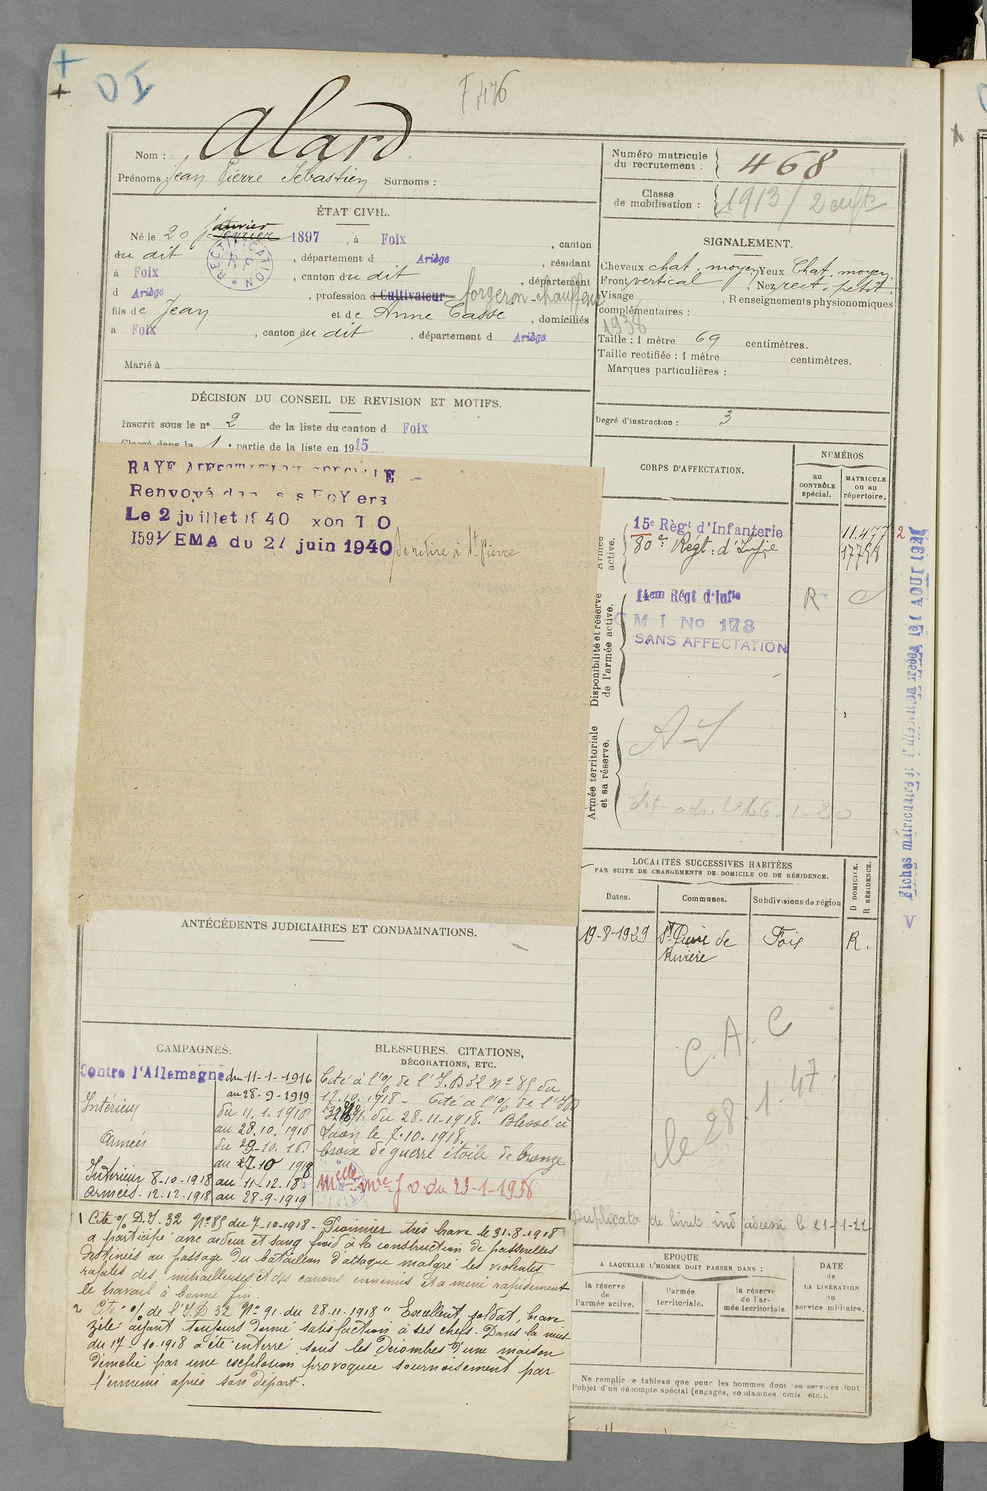 DI
F 476
Nom : Alard
Prénoms Jean Pierre Sébastien Surnoms :
Numéro matricule du recrutement : 468
Classe de mobilisation : 1913 / 2 enfts
ÉTAT CIVIL.
Né le 20 janvier février 1897, à Foix, canton
du dit, département d Ariège, résidant
à Foix, canton du dit, département
d Ariège, profession d Cultivateur forgeron-chauffeur
fils de Jean et de Anne Casse, domiciliés
à Foix, canton du dit, département d Ariège
Marié à
RECTIFICATION
SIGNALEMENT.
Cheveux chat. moyen Yeux Chat. moyen.
Front vertical Nez rect. petit.
Visage Renseignements physionomiques
complémentaires :
1938
Taille : 1 mètre 69 centimètres.
Taille rectifiée : 1 mètre centimètres.
Marques particulières :
Degré d'instruction : 3
DÉCISION DU CONSEIL DE REVISION ET MOTIFS.
Inscrit sous le n° 2 de la liste du canton d Foix
Classé dans la 1 e partie de la liste en 1915
RAYE AFFECTATION SPECIALE
Renvoyé dans ses FoYers
Le 2 juillet 1940
159 1/EMA du 27 juin 1940 se retire à St Pierre
CORPS D'AFFECTATION.
NUMÉROS
au CONTRÔLE spécial.
MATRICULE ou au répertoire.
Armée active.
15e Règt d'Infanterie 11.477 2
80e Régt : d'Infie
Disponibilité et réserve de l'armée active.
14em Régt d'Infie R
C M I No 173
SANS AFFECTATION
Armée territoriale et sa réserve.
Fiches matricule
LOCALITÉS SUCCESSIVES HABITÉES
PAR SUITE DE CHANGEMENTS DE DOMICILE OU DE RÉSIDENCE.
Dates.
Communes.
Subdivisions de région
D DOMICILE.
R RÉSIDENCE.
19-8-1929 St Pierre de Rivière Foix R.
C. A. C
le 28. 1. 47.
ANTÉCÉDENTS JUDICIAIRES ET CONDAMNATIONS.
CAMPAGNES.
Contre l'Allemagne du 11-1-1916
au 28-9-1919
Intérieur du 11.1.1916
au 28.10.1916
Armées du 29-10-16
Intérieur 8-10-1918 au 11-12-18
Armées - 12-12-1918 au 28-9-1919
BLESSURES. CITATIONS,
DÉCORATIONS, ETC.
Cité à l'o/ de l'I.D 32 N° 85 du
17.10.1918 - Cité à l'o/ de l'ID
32 N° 91 du 28-11-1918. Blessé à
Laon le 7.10.1918.
Croix de guerre étoile de bronze
Mlle Mre J O du 23-1-1938
Duplicata du livret ind adressé le 21-1-22
1 Cité o/ D.I. 32 N° 85 du 7-10-1918 - Pionnier très brave le 31-8-1918
a participé avec ardeur et sang froid à la construction de passerelles
destinées au passage du bataillon d'attaque malgré les violentes
rafales des mitrailleuses et des canons ennemis et a mené rapidement
le travail à bonne fin.
2 Cité o/ de l'I.D 32 N° 91 du 28-11-1918 " Excellent soldat, brave
zélé ayant toujours donné satisfaction à ses chefs. Dans la nuit
du 17-10-1918 a été enterré sous les décombres d'une maison
démolie par une explosion provoquée sournoisement par
l'ennemi après son départ.
EPOQUE
A LAQUELLE L'HOMME DOIT PASSER DANS :
la réserve de l'armée active.
l'armée territoriale.
la réserve de l'armée territoriale.
DATE
de LA LIBÉRATION du service militaire.
Ne remplir ce tableau que pour les hommes dont les services font
l'objet d'un décompte spécial (engagés, condamnés, omis, etc.).